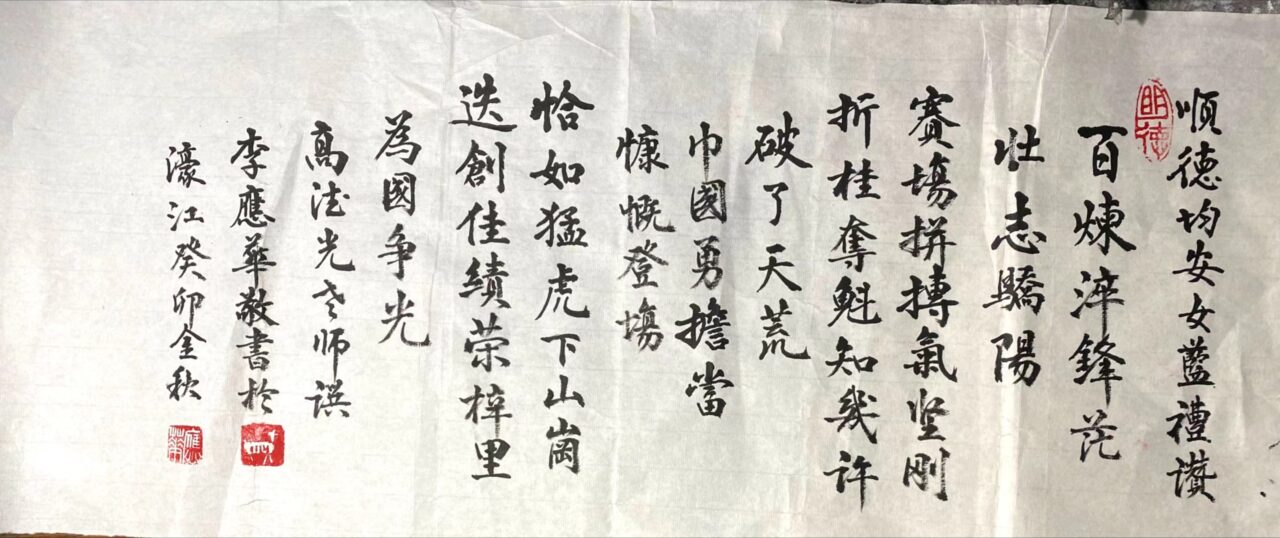 順德均安女藍禮讚
明德
百煉淬鋒茫
壯志驕陽
賽塲拼搏氣坚刚
折桂奪魁知幾許
破了天荒
巾國勇擔當
慷慨登塲
恰如猛虎下山崗
迭創佳績荣梓里
為國争光
高法光老师譔
李應華敬書於
濠江癸卯金秋
應華